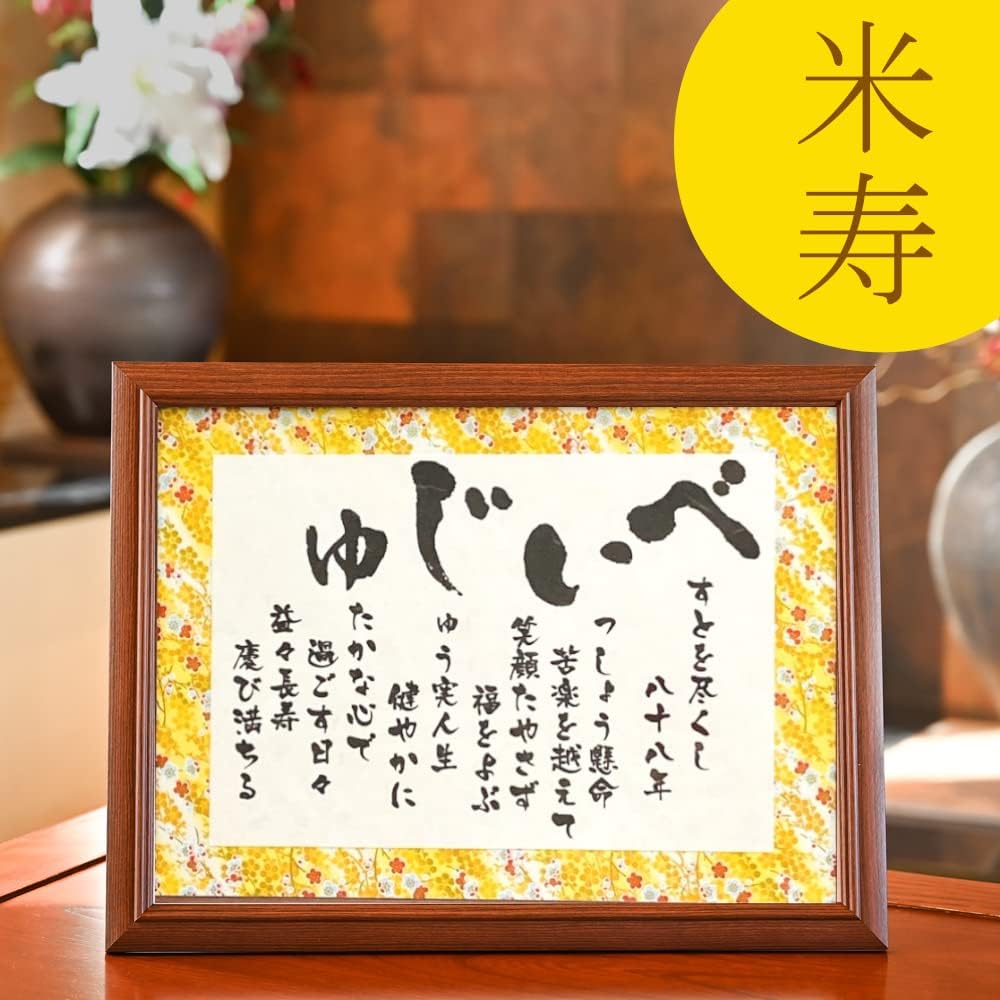 米寿
べいじゅ
すとを尽くし
八十八年
っしょう懸命
苦楽を越えて
笑顔たやさず
福をよぶ
ゅう実人生
健やかに
たかな心で
過ごす日々
益々長寿
慶び満ちる